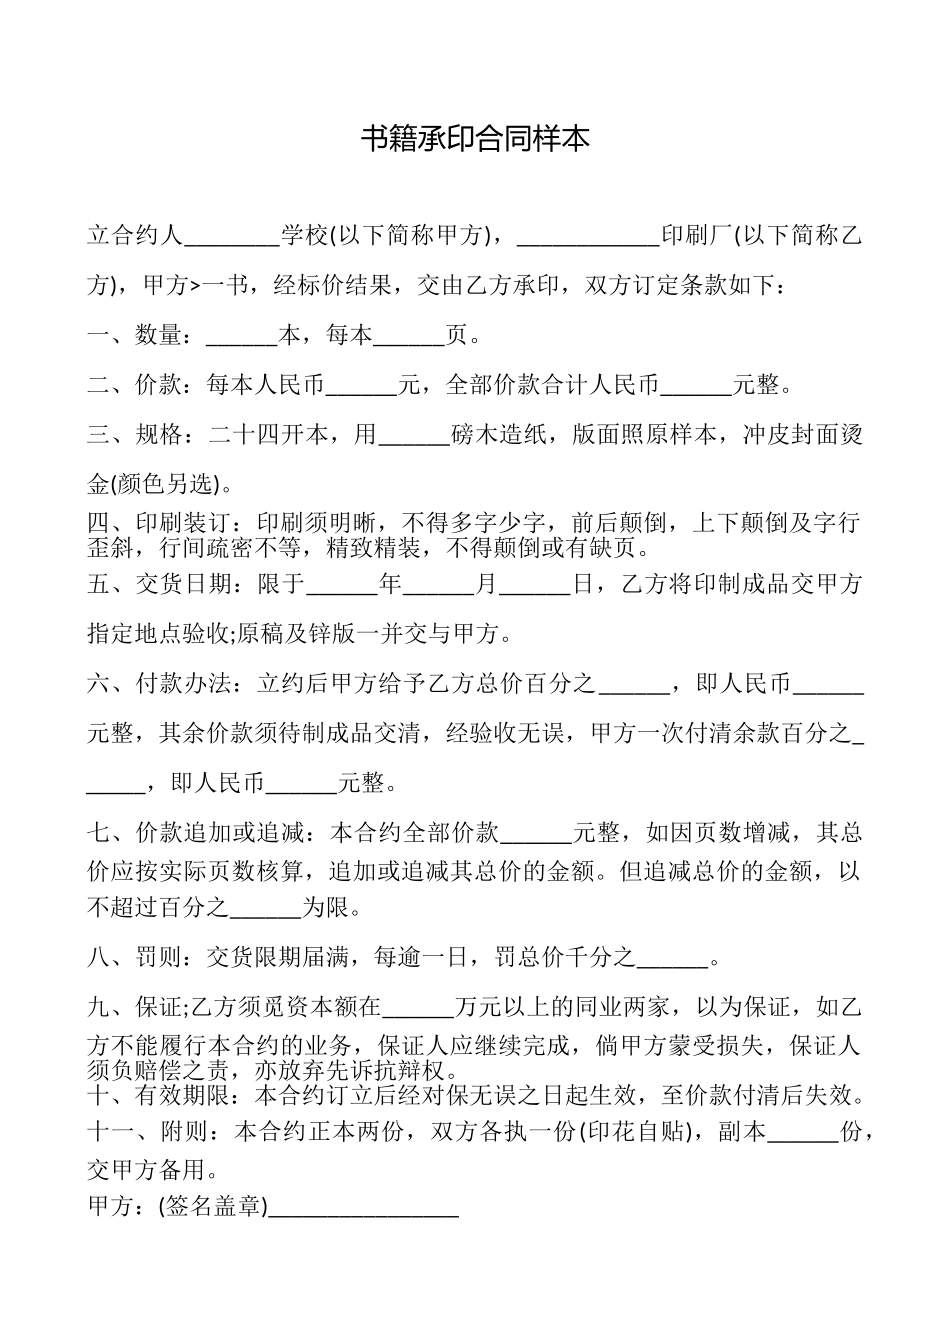 书籍承印合同样本
立合约人________学校(以下简称甲方)，____________印刷厂(以下简称乙
方)，甲方>一书，经标价结果，交由乙方承印，双方订定条款如下：
一、数量：______本，每本______页。
二、价款：每本人民币______元，全部价款合计人民币______元整。
三、规格：二十四开本，用______磅木造纸，版面照原样本，冲皮封面烫
金(颜色另选)。
四、印刷装订：印刷须明晰，不得多字少字，前后颠倒，上下颠倒及字行
歪斜，行间疏密不等，精致精装，不得颠倒或有缺页。
五、交货日期：限于______年______月______日，乙方将印制成品交甲方
指定地点验收;原稿及锌版一并交与甲方。
六、付款办法：立约后甲方给予乙方总价百分之______，即人民币______
元整，其余价款须待制成品交清，经验收无误，甲方一次付清余款百分之_
_____，即人民币______元整。
七、价款追加或追减：本合约全部价款______元整，如因页数增减，其总
价应按实际页数核算，追加或追减其总价的金额。但追减总价的金额，以
不超过百分之______为限。
八、罚则：交货限期届满，每逾一日，罚总价千分之______。
九、保证;乙方须觅资本额在______万元以上的同业两家，以为保证，如乙
方不能履行本合约的业务，保证人应继续完成，倘甲方蒙受损失，保证人
须负赔偿之责，亦放弃先诉抗辩权。
十、有效期限：本合约订立后经对保无误之日起生效，至价款付清后失效。
十一、附则：本合约正本两份，双方各执一份(印花自贴)，副本______份，
交甲方备用。
甲方：(签名盖章)________________